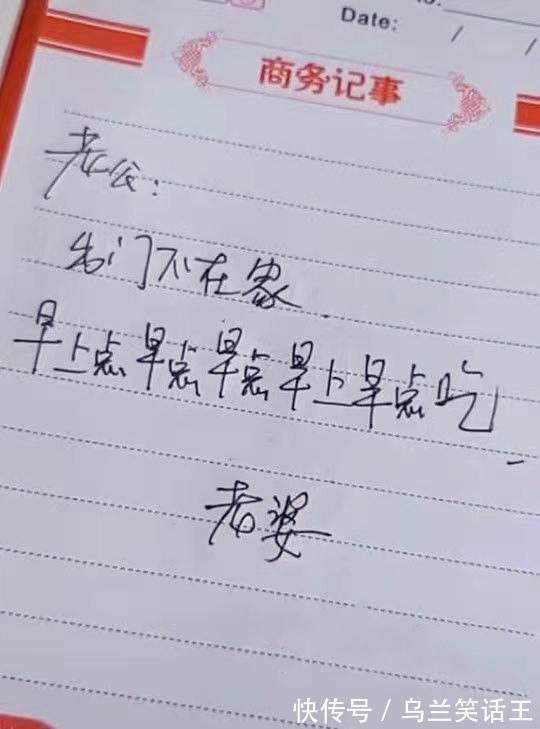 Date: / /
商务记事
老公：
出门不在家.
早上点早点早点早上早点吃
老婆
快传号 / 乌兰笑话王